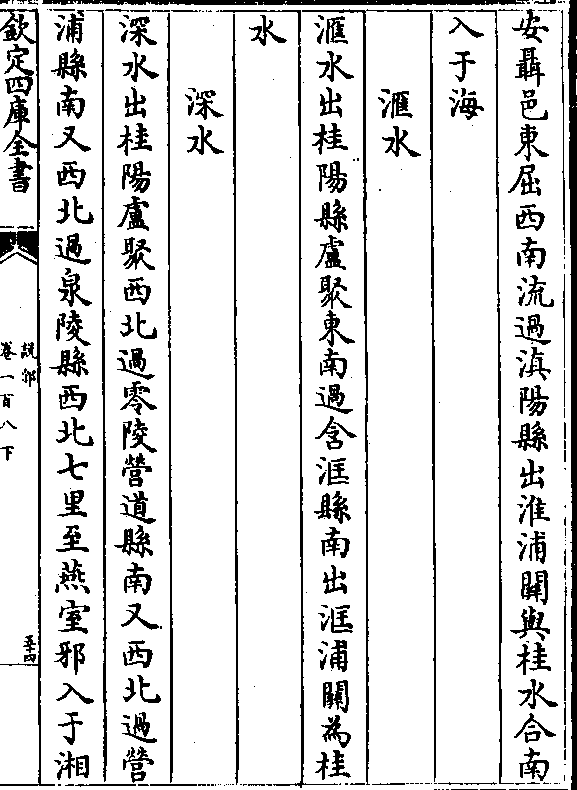 安聶邑東屈西南流過滇陽縣出淮浦關與桂水合南
入于海
滙水
滙水出桂陽縣盧聚東南過含洭縣南出洭浦關為桂
水
深水
深水出桂陽盧聚西北過零陵營道縣南又西北過營
浦縣南又西北過泉陵縣西北七里至燕室邪入于湘
欽定四庫全書
說郛
卷一百八下
五十四